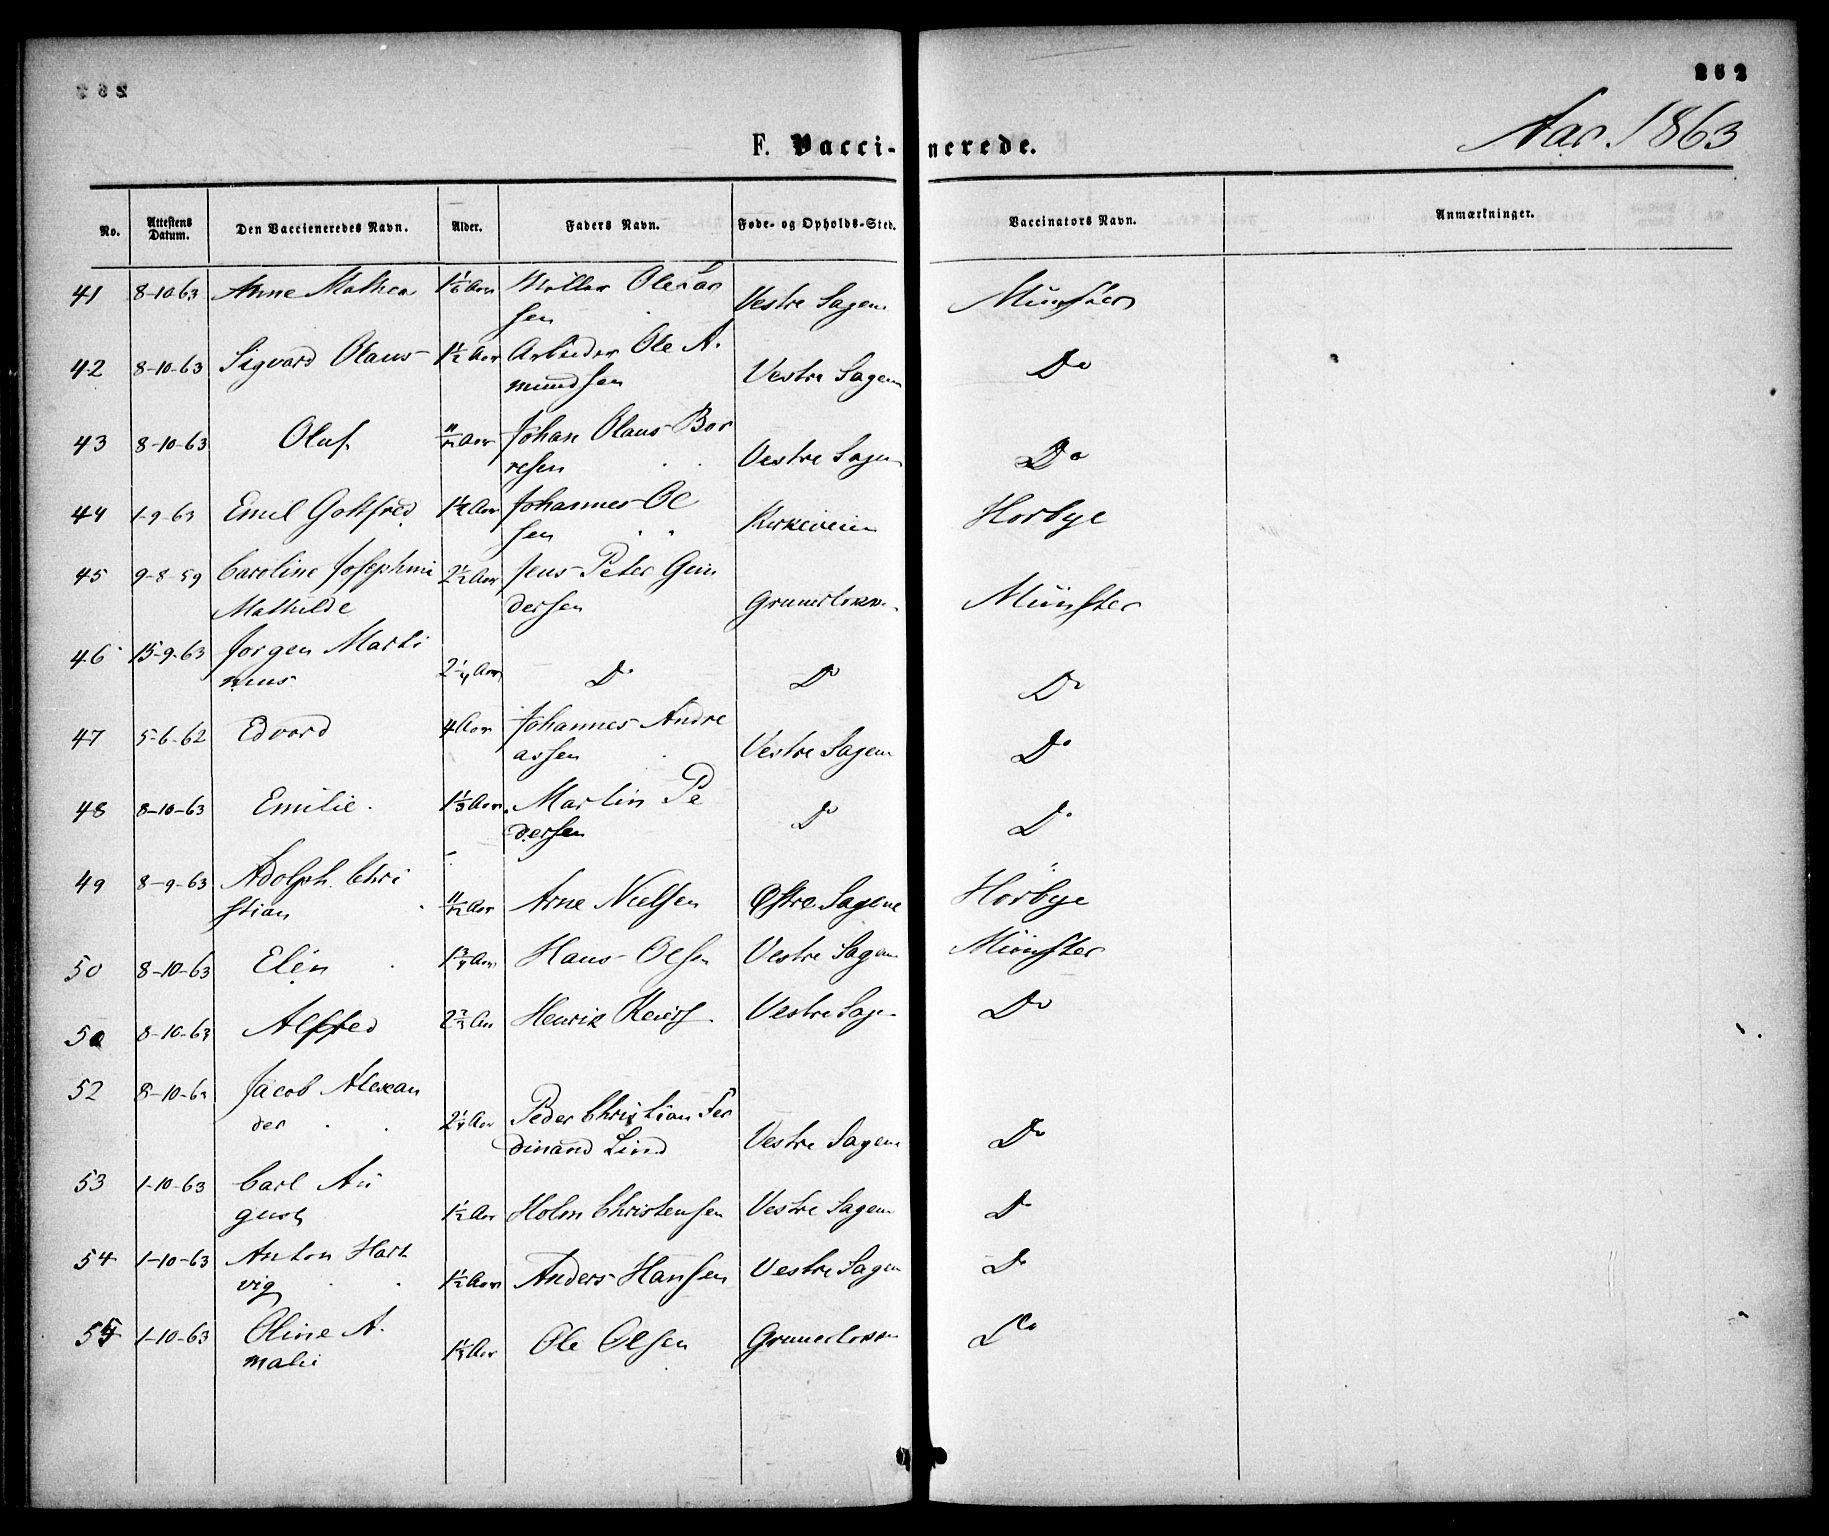 262
F. Vaccinerede.
Aar 1863
No. Attestens Datum. Den Vaccieneredes Navn. Alder. Faders Navn. Føde- og Opholds-Sted. Vaccinators Navn. Anmærkninger.
41 8-10-63 Anne Mathea Aar Møller Ole Lar
sen Vestre Sagene Münster
42 8-10-63 Sigvard Olaus 1½ Aar Arbeider Ole A.
mundsen Vestre Sagene Do
43 8-10-63 Oluf. 11/12 Aar Johan Olaus Bor
resen Vestre Sagen Do
44 1-9-63 Emil Gottfred Aar Johannes Ol
sen Kirkeveien Horbye
45 9-8-59 Caroline Josephine 2½ Aar Jens Peter Gun
Mathilde dersen Grunerløkken Münster
46 15-9-63 Jorgen Marti
nius 2¼ Aar Do Do Do
47 5-6-62 Edvard 4 Aar Johannes Andre
assen Vestre Sagene Do
48 8-10-63 Emilie. Aar Martin Pe
dersen Do Do
49 8-9-63 Adolph Chri
stian 11/12 Aar Arne Nielsen Østre Sagene Hørbye
50 8-10-63 Elen 1¾ Aar Hans Olsen Vestre Sagene Münster
8-10-63 Alfred Aar Henrik Vestre Sage Do
52 8-10-63 Jacob Alexan
der 2¼ Aar Peder Christian Fer
dinand Lind Vestre Sagene Do
53 1-10-63 Carl Au
gust 1½ Aar Holm Christensen Vestre Sagene Do
54 1-10-63 Anton Hart
vig 1½ Aar Anders Hansen Vestre Sagen Do
55 1-10-63 Oline A.
malie Aar Ole Olsen Grunerløkken Do